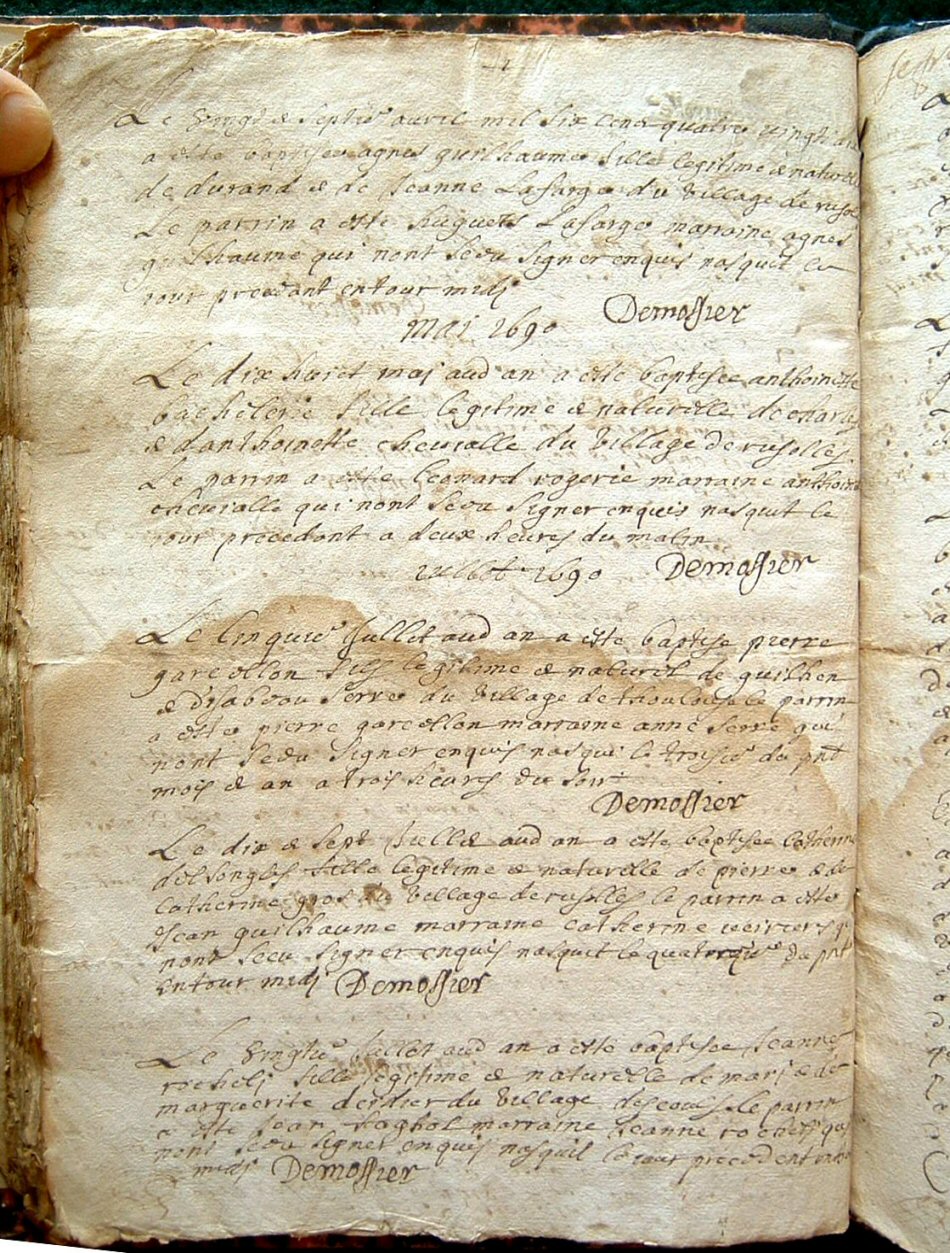 Le vingt & septie avril mil six cens quatre vingt dix
a esté baptisée agnes guilhaume fille legitime & naturelle
de durand & de Jeanne Lafarge du village de
Le parrin a esté huguets Lafarge marraine agnes
guilhaume qui nont sceu signer enquis nasquit le
jour precedant entour midj
Demossier
mai 1690
Le dix huict maj aud an a esté baptisée anthoinette
bachelerie fille legitime & naturelle de
& danthoinette chevialle du village de rusolles
Le parrin a esté Leonard rogerie marraine anthoine
chevialle qui nont sceu signer enquis nasquit le
jour precedant a deux heures du matin
Demossier
1690
Le cinquie Juillet aud an a esté baptise pierre
garcellon fils legitime & naturel de guilhen
& serre du village de thoulouse le parrin
a esté pierre garcellon marraine anne serre qui
nont sceu signer enquis nasqui le troisie du pnt
mois & an a trois heures du soir
Demossier
Le dix & sept Juillet aud an a esté baptisée catherine
delsongles fille legitime & naturelle de pierre & de
catherine gros du village de rusolles le parrin a esté
Jean guilhaume marraine catherine
nont sceu signer enquis nasquit le du pnt
entour midj Demossier
Le vingtie Juillet aud an a esté baptisée Jeanne
rochelj fille legitime & naturelle de & de
marguerite du village le parrin
a esté Jean marraine Jeanne
nont sceu signer enquis nasquit le jour precedent
midj Demossier